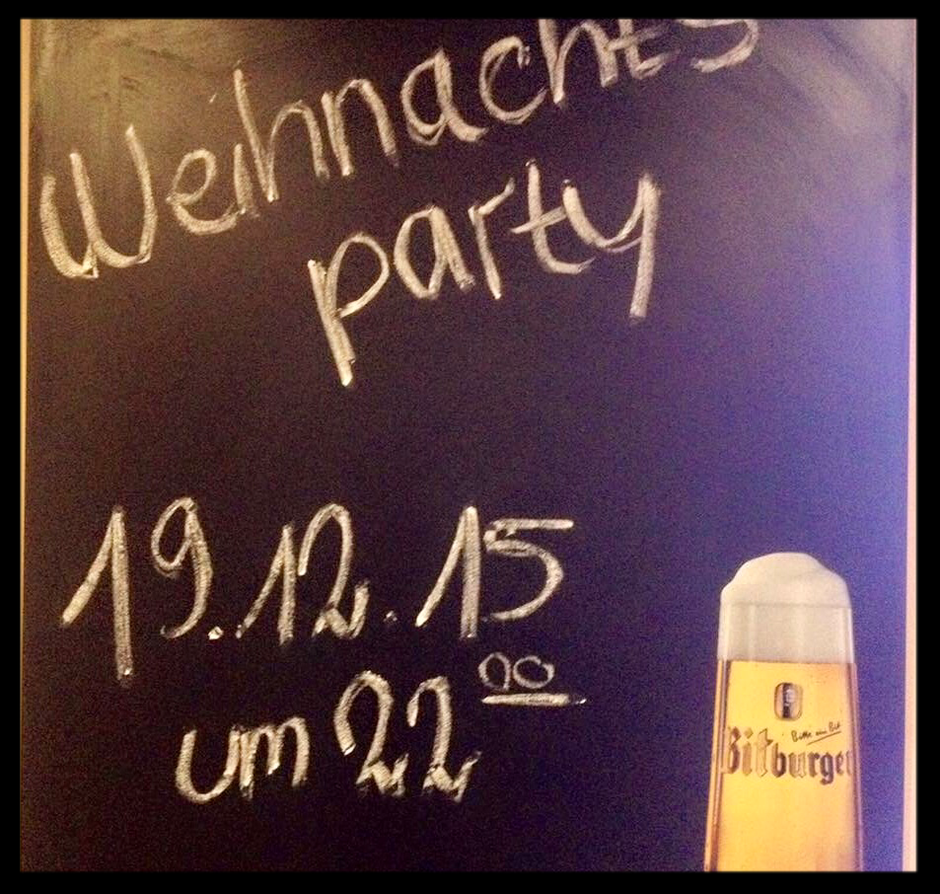 Weihnachts
party
19.12.15
um 22 00
Bitte ein Bit
Bitburger